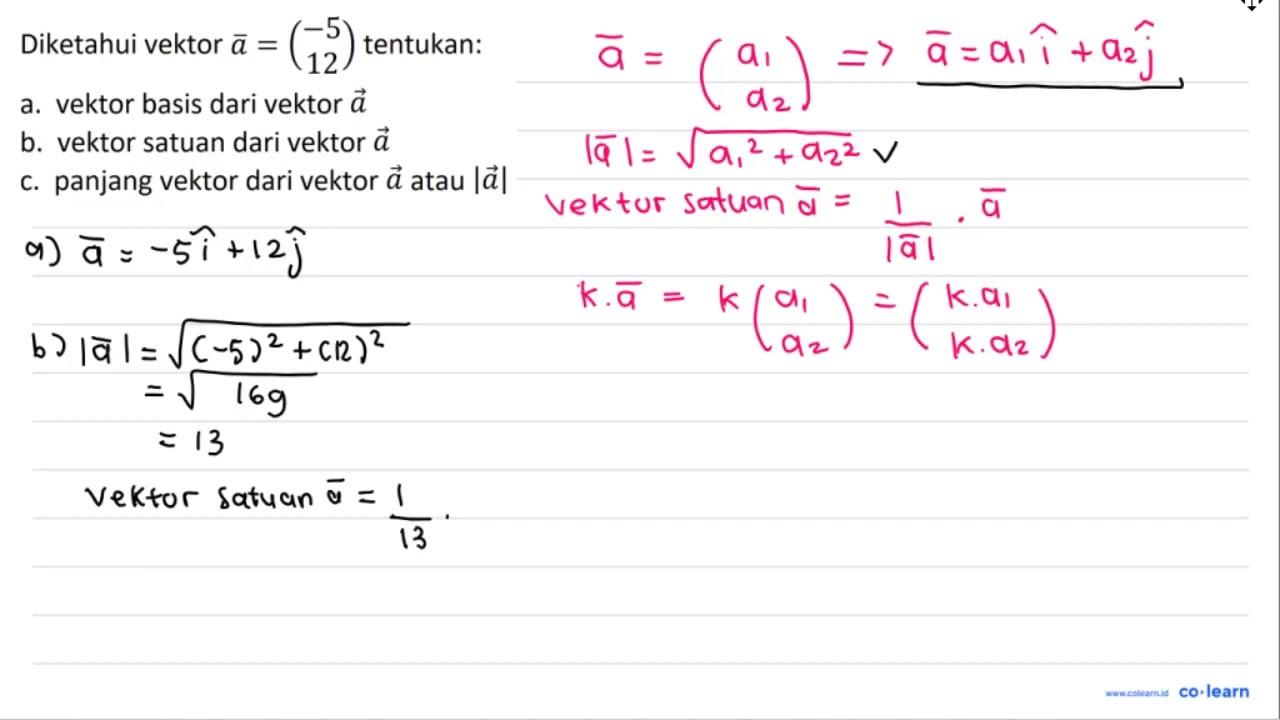 Diketahui vektor a̅ = (−5 12) tentukan:
a. vektor basis dari vektor a⃗
b. vektor satuan dari vektor a⃗
c. panjang vektor dari vektor a⃗ atau |a⃗|
a) a̅ = -5î + 12ĵ
b) |a̅| = √(-5)² + (12)²
= √169
= 13
Vektor satuan a̅ = 1/13 .
a̅ = (a₁ a₂) => a̅ = a₁î + a₂ĵ
|a̅| = √a₁² + a₂² ✓
vektor satuan a̅ = 1/|a̅| . a̅
k.a̅ = k (a₁ a₂) = (k.a₁ k.a₂)
www.colearn.id co·learn